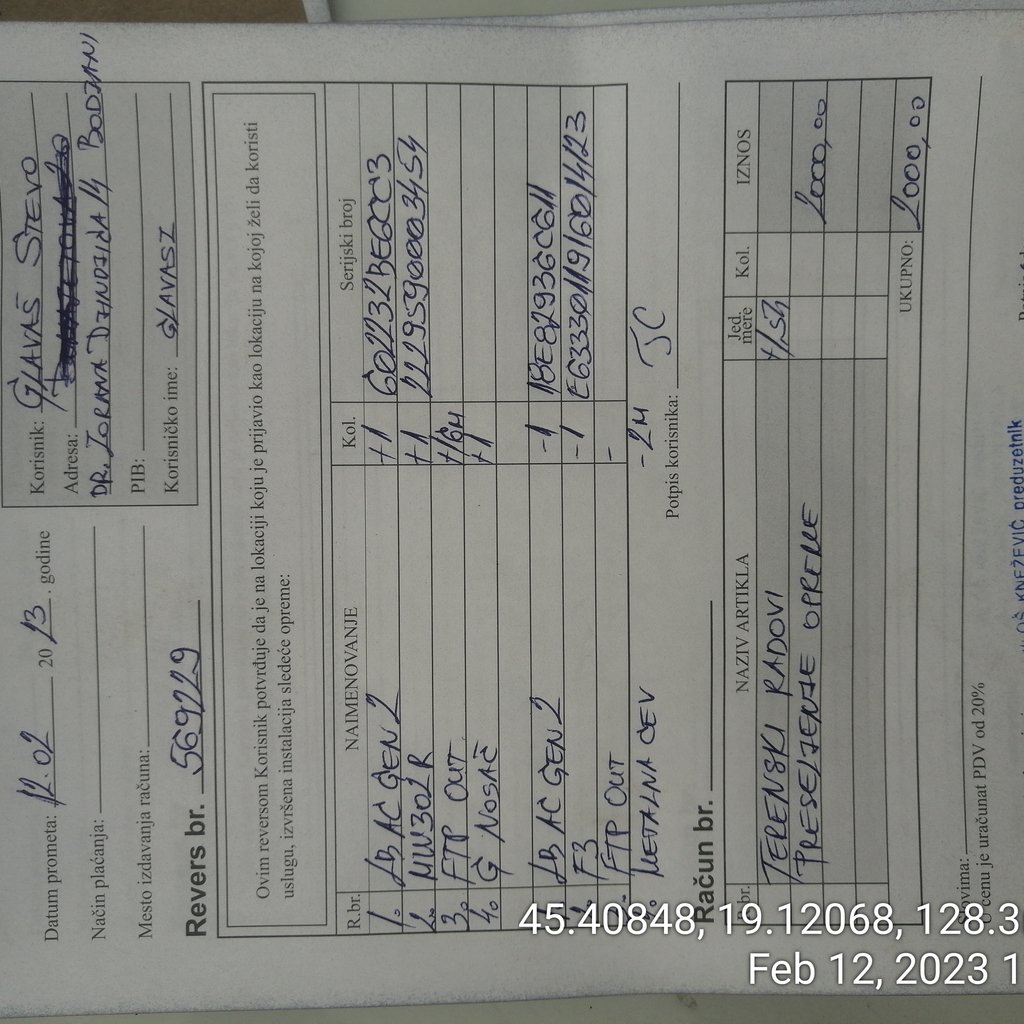 Datum prometa: 12.02 20 23. godine
Način plaćanja:
Mesto izdavanja računa:
Korisnik: GLAVAŠ STEVO
Adresa:
DR. ZORANA DZINDZIDA 14 BODZANI
PIB:
Korisničko ime: GLAVASZ
Revers br. 569229
Ovim reversom Korisnik potvrđuje da je na lokaciji koju je prijavio kao lokaciju na kojoj želi da koristi
uslugu, izvršena instalacija sledeće opreme:
R.br. NAIMENOVANJE Kol. Serijski broj
1. LB AC GEN 2 +1 602232BEQCC3
2. MW302R +1 2229590003454
3. FTP OUT +16M
4. G NOSAČ +1
1. LB AC GEN 2 -1 18E82936C611
F3 -1 E6333011916014123
FTP OUT -
METALNA CEV -2M
Potpis korisnika: JC
Račun br.
R.br. NAZIV ARTIKLA Jed. mere Kol. IZNOS
TERENSKI RADOVI +/54
PRESELJENJE OPREME 2000,00
UKUPNO: 2000,00
Slovima:
U cenu je uračunat PDV od 20%
KNEŽEVIĆ preduzetnik
45.40848, 19.12068, 128.3
Feb 12, 2023 1